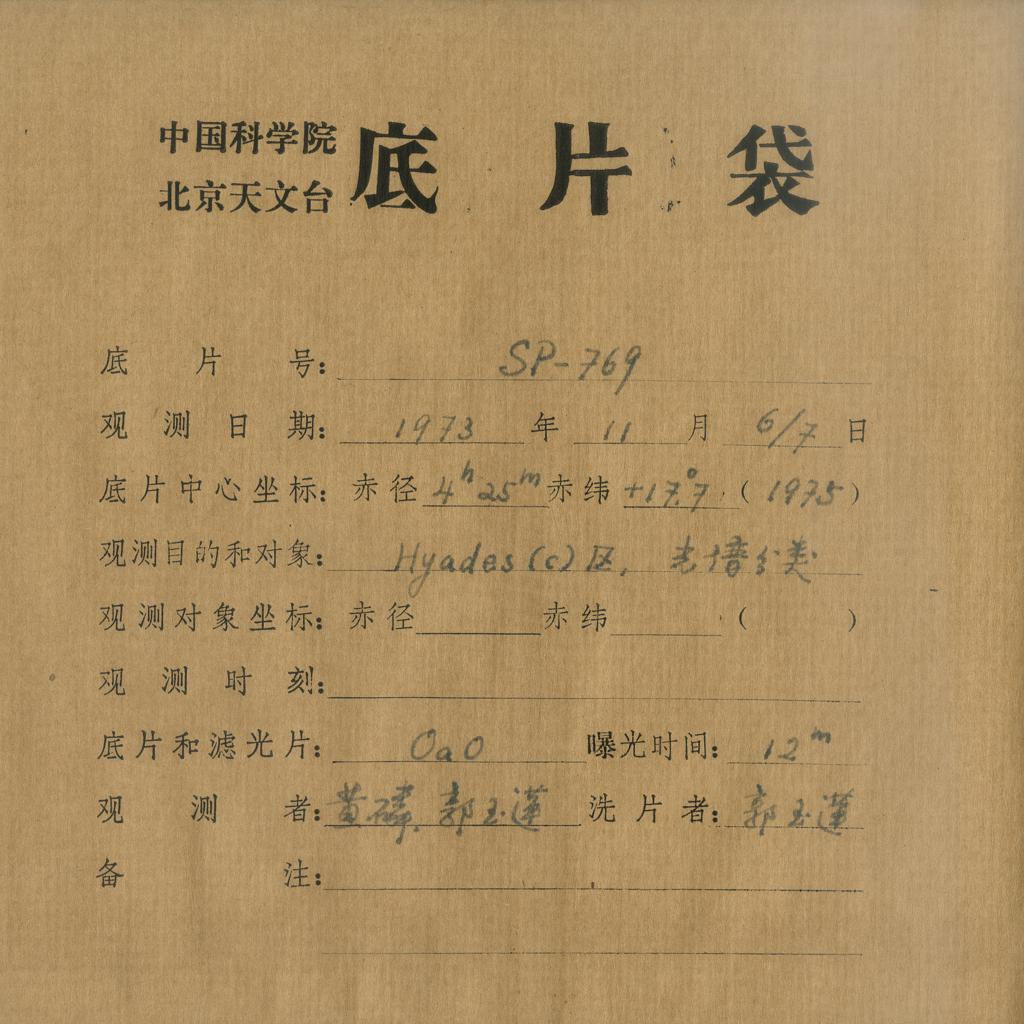 中国科学院
北京天文台
底片袋
底片号: SP-769
观测日期: 1973年11月6/7日
底片中心坐标: 赤径 4h25m 赤纬 +17°.7 (1975)
观测目的和对象: Hyades(c)区, 光谱分类
观测对象坐标: 赤径 赤纬 ( )
观测时刻:
底片和滤光片: OaO 曝光时间: 12m
观测者: 黄磷、郭玉莲 洗片者: 郭玉莲
备注: